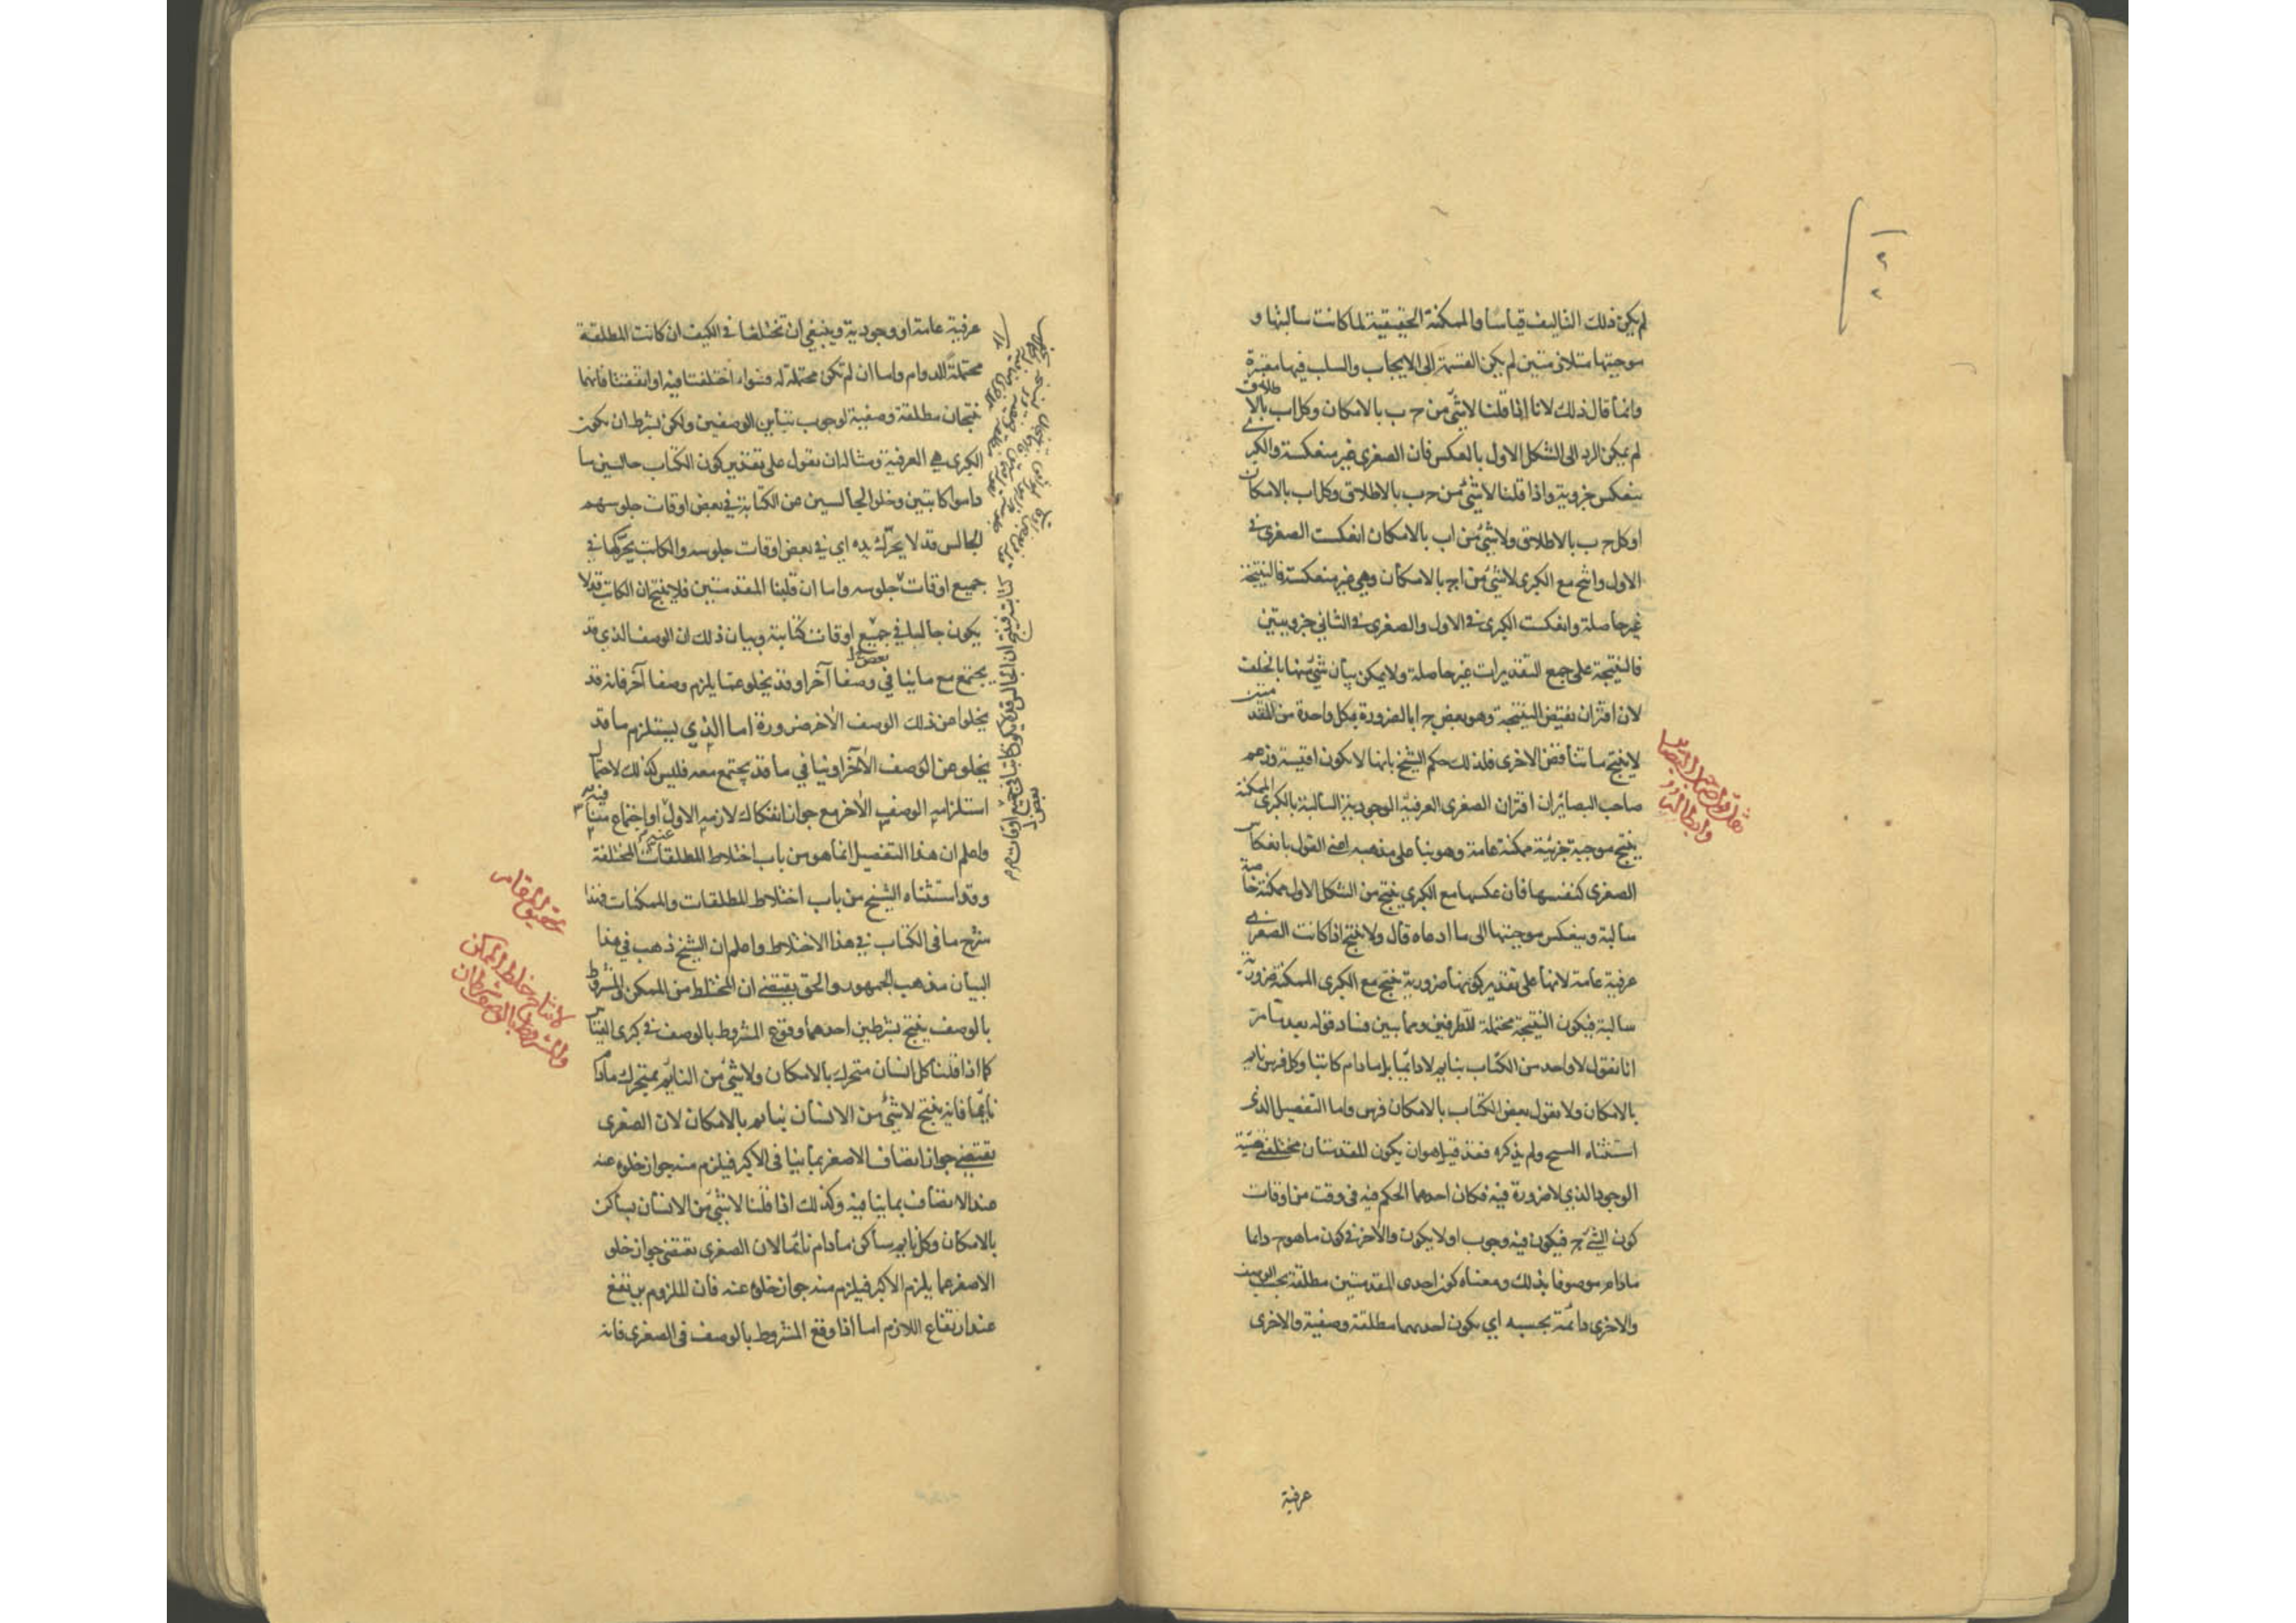 لم يكن ذلك التاليف قياسا والممكنة الحقيقية لما كانت سالبتها و
موجبتها متلازمتين لم يكن القسمة الى الايجاب والسلب فيها معتبرة
وانما قال ذلك لانا اذا قلنا لا شئ من ج ب بالامكان وكل اب بالاطلاق
لم يمكن الرد الى الشكل الاول بالعكس فان الصغرى غير منعكسة والكبرى
ينعكس جزوية واذا قلنا لا شئ من ج ب بالاطلاق وكل اب بالامكان
او كل ج ب بالاطلاق ولا شئ من اب بالامكان انعكست الصغرى في
الاول وانتج مع الكبرى لا شئ من اج بالامكان وهي غير منعكسة فالنتيجة
غير حاصلة وانعكست الكبرى في الاول والصغرى في الثاني جزويتين
فالنتيجة على جمع التقديرات غير حاصلة ولا يمكن بيان شئ منها بالخلف
لان اقتران نقيض النتيجة وهو بعض ج ا بالضرورة بكل واحدة من المقدمتين
لا ينتج ما يناقض الاخرى فلذلك حكم الشيخ بانها لا يكون اقيسة وزعم
صاحب البصائر ان اقتران الصغرى العرفية الوجودية السالبة بالكبرى الممكنة
ينتج موجبة جزئية ممكنة عامة وهو بنا على مذهبه اعنى القول بانعكاس
الصغرى كنفسها فان عكسها مع الكبرى ينتج من الشكل الاول ممكنة خاصة
سالبة وينعكس موجبتها الى ما ادعاه قال ولا ينتج اذا كانت الصغرى
عرفية عامة لانها على تقدير كونها ضرورية ينتج مع الكبرى الممكنة ضرورية
سالبة فيكون النتيجة محتملة للطرفين ومما يبين فساد قوله بعد ما مر
انا نقول لا واحد من الكتاب بنايم لا دائما بل ما دام كاتبا وكل فرس نايم
بالامكان ولا نقول بعض الكتاب بالامكان فرس واما التفصيل الذي
استثناه الشيخ ولم يذكره فقد قيل هو ان يكون المقدمتان مختلفتي
الوجود الذي لا ضرورة فيه فكان احدهما الحكم فيه في وقت من اوقات
كون الشئ ج فيكون فيه وجوب او لا يكون والاخر في كون ما هو ج دايما
مادام موصوفا بذلك ومعناه كون احدى المقدمتين مطلقة بحسب الوصف
والاخرى دائمة بحسبه اي يكون احديهما مطلقة وصفية والاخرى
عرفية
عرفية عامة او وجودية وينبغي ان تختلفا في الكيف ان كانت المطلقة
محتملة للدوام واما ان لم تكن محتملة له فسواء اختلفتا فيه او اتفقتا فانهما
ينتجان مطلقة وصفية لوجوب تباين الوصفين ولكن بشرط ان يكون
الكبرى هي العرفية ومثاله ان نقول على تقدير كون الكتاب جالسين ما
داموا كاتبين وخلو الجالسين عن الكتابة في بعض اوقات جلوسهم
الجالس قد لا يحرك يده اي في بعض اوقات جلوسه والكاتب يحركها في
جميع اوقات جلوسه واما ان قلبنا المقدمتين فلا ينتج ان الكاتب قد لا
يكون جالسا في جميع اوقات كتابته وبيان ذلك ان الوصف الذي قد
يجتمع مع ما ينافي وصفا آخر او قد يخلو عما يلزم وصفا آخر فانه قد
يخلوا عن ذلك الوصف الآخر ضرورة اما الذي يستلزم ما قد
يخلو عن الوصف الآخر او ينافي ما قد يجتمع معه فليس كذلك لاحتمال
استلزامه الوصف الآخر مع جواز انفكاك لازمه الاول او اجتماع
واعلم ان هذا التفصيل انما هو من باب اختلاط المطلقات المختلفة
وقد استثناه الشيخ من باب اختلاط المطلقات والممكنات فهذا
شرح ما في الكتاب في هذا الاختلاط واعلم ان الشيخ ذهب في هذا
البيان مذهب الجمهور والحق يقتضي ان المختلط من الممكن والمشروط
بالوصف ينتج بشرطين احدهما وقوع المشروط بالوصف في كبرى القياس
كما اذا قلنا كل انسان متحرك بالامكان ولا شئ من النايم بمتحرك مادام
نايما فانه ينتج لا شئ من الانسان بنايم بالامكان لان الصغرى
تقتضي جواز اتصاف الاصغر بما ينافي الاكبر فيلزم منه جواز خلوه عنه
عند الاتصاف بما ينافيه وكذلك اذا قلنا لا شئ من الانسان بساكن
بالامكان وكل نايم ساكن مادام نائما لان الصغرى تقتضي جواز خلو
الاصغر عما يلزم الاكبر فيلزم منه جواز خلوه عنه فان الملزوم يرتفع
عند ارتفاع اللازم اما اذا وقع المشروط بالوصف في الصغرى فانه
تحقيق المقام
لانتاج خلط الممكن
والمشروط بالوصف شرطان